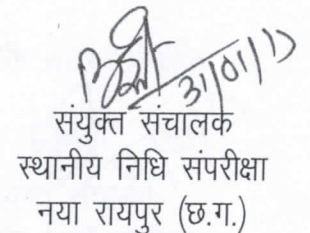 31/01/17
संयुक्त संचालक
स्थानीय निधि संपरीक्षा
नया रायपुर (छ.ग.)